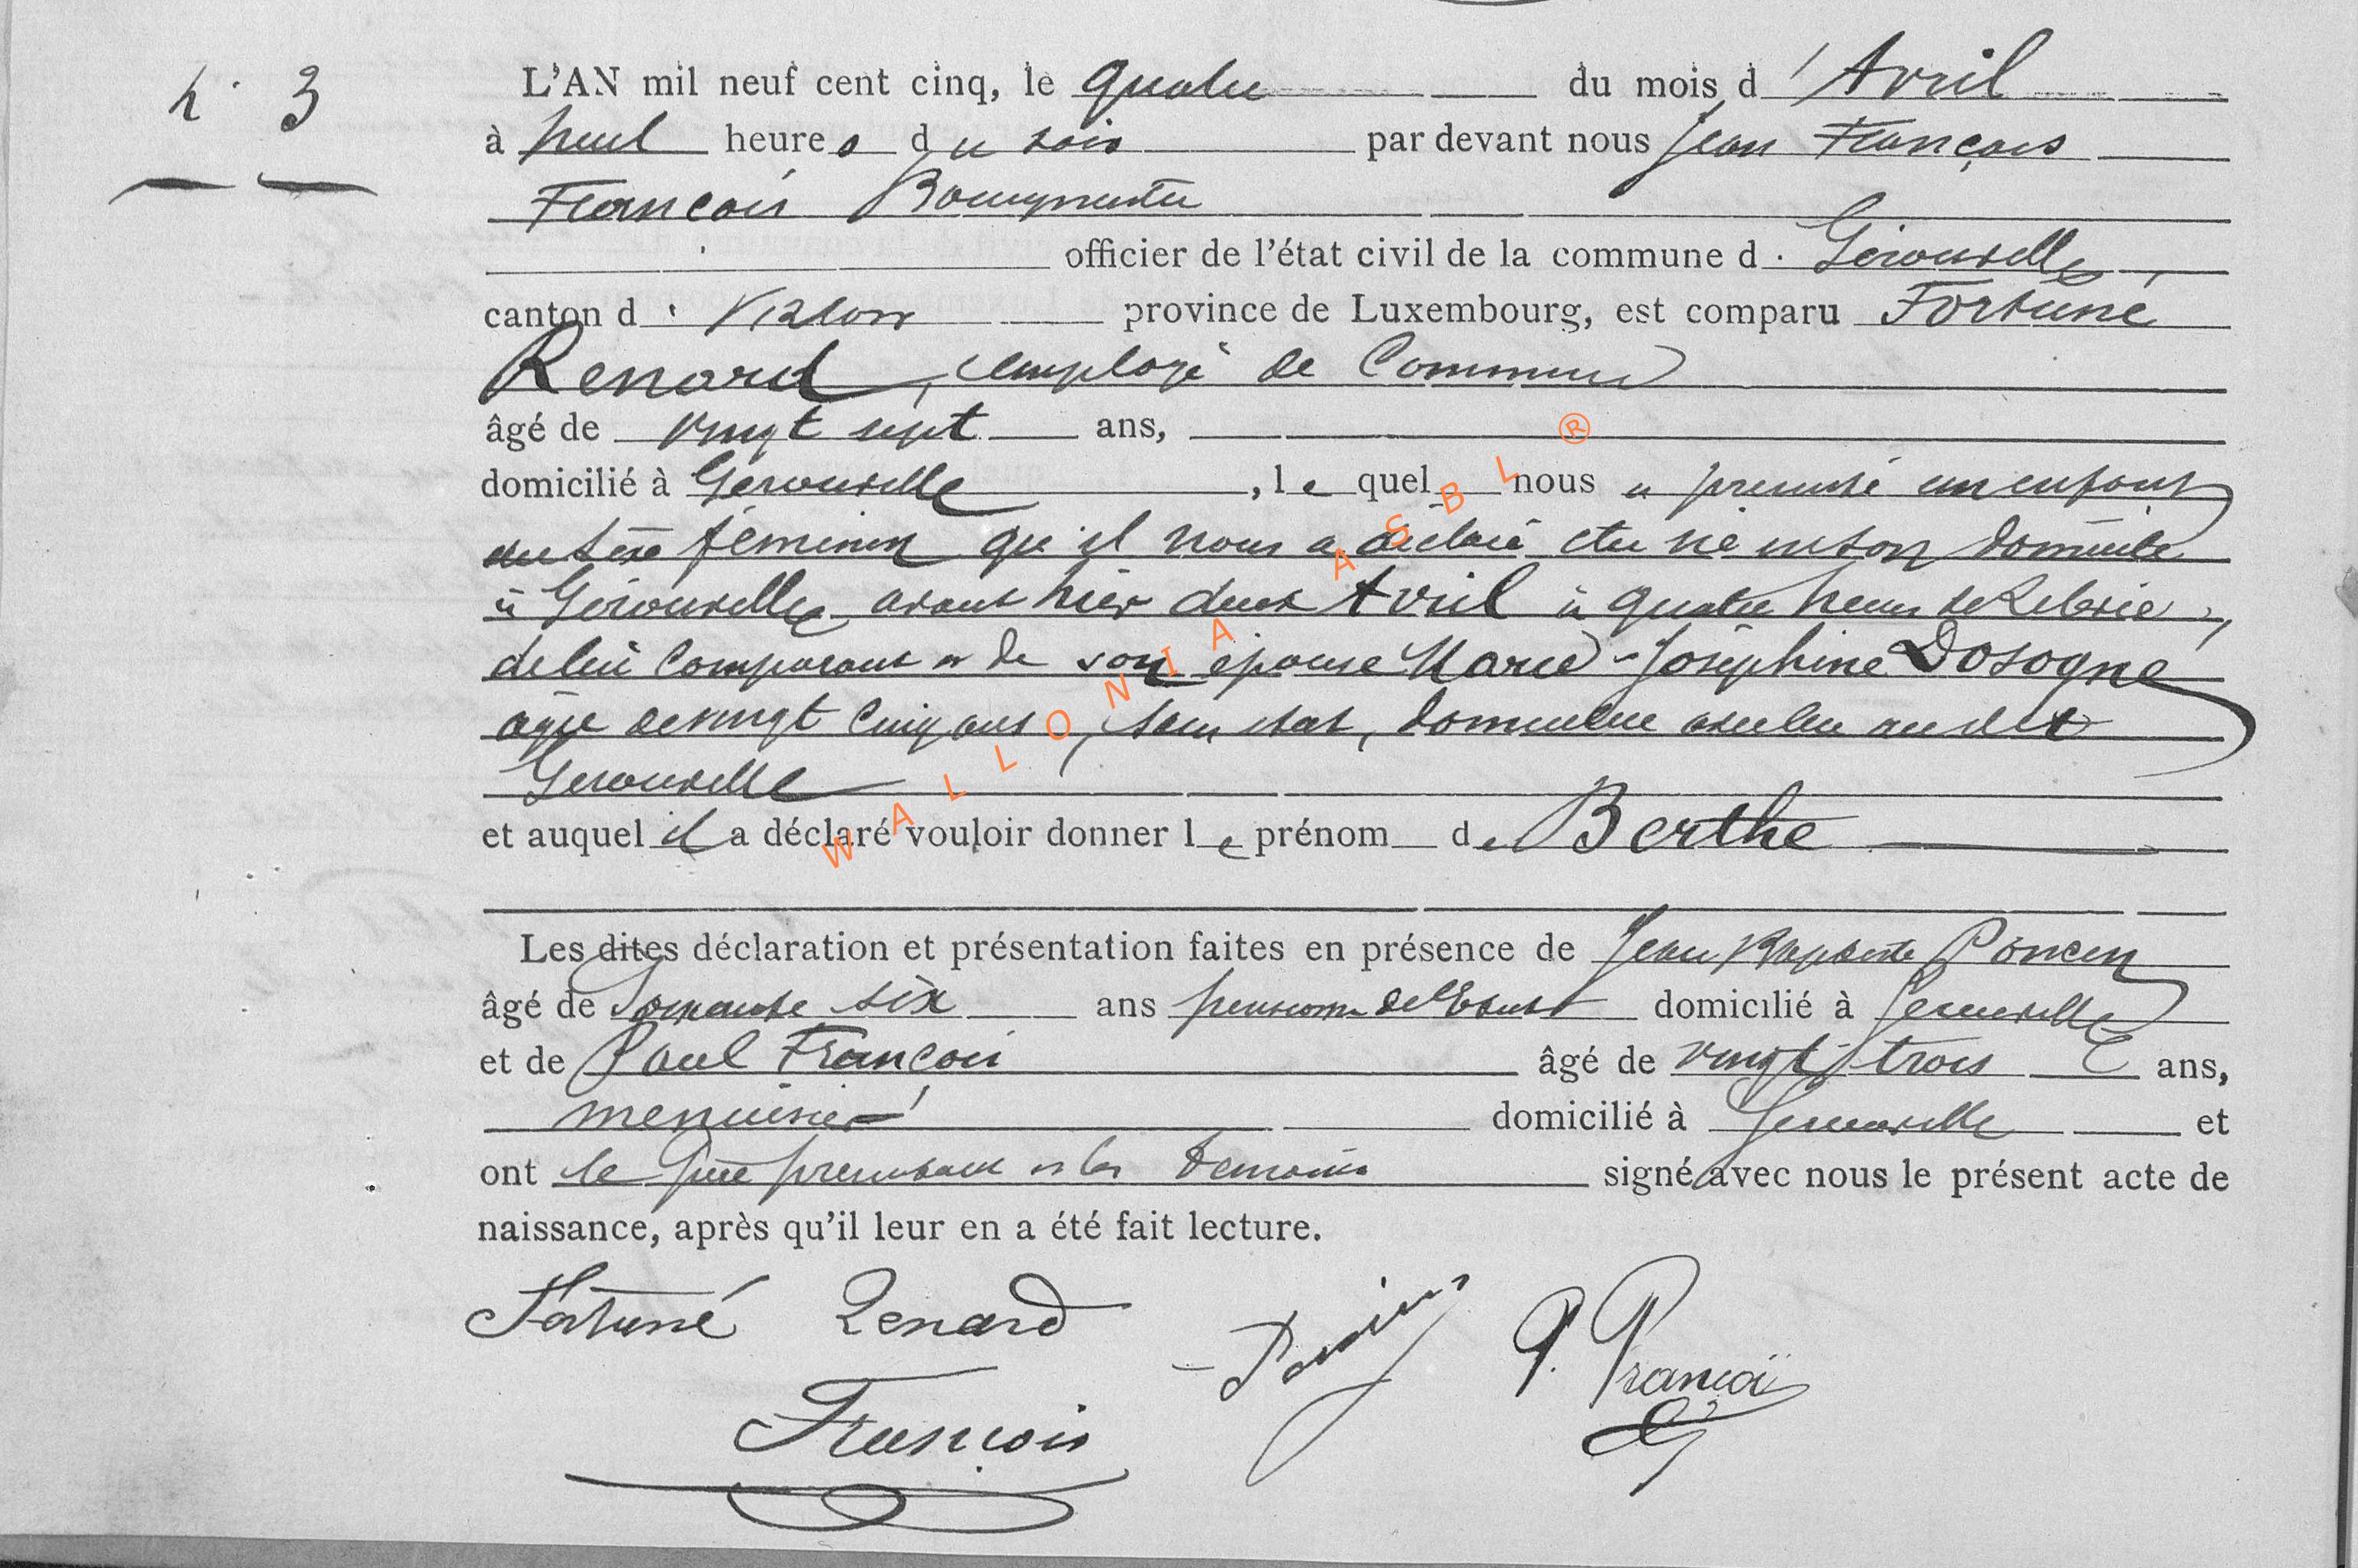 n° 3
L'AN mil neuf cent cinq, le quatre du mois d'Avril
à heures du soir par devant nous Jean François
François Bourgmestre
officier de l'état civil de la commune de Gérouville
canton de Virton province de Luxembourg, est comparu Fortuné
Renard, employé de Commerce
âgé de vingt sept ans,
domicilié à Gérouville, lequel nous a présenté un enfant
du sexe féminin qu'il nous a déclaré être né en son domicile
à Gérouville avant hier deux Avril à quatre heures de relevée,
de lui comparant et de son épouse Marie-Joséphine Dosogne
agée de vingt cinq ans, sans état, domiciliée avec lui au dit
Gérouville
et auquel il a déclaré vouloir donner le prénom de Berthe
Les dites déclaration et présentation faites en présence de Jean Baptiste Poncin
âgé de soixante six ans pensionné de l'Etat domicilié à Gérouville
et de Paul François âgé de vingt trois ans,
menuisier domicilié à Gérouville et
ont le père présentant et les témoins signé avec nous le présent acte de
naissance, après qu'il leur en a été fait lecture.
Fortuné Renard Poncin P. François
François
WALLONIA ASBL ®